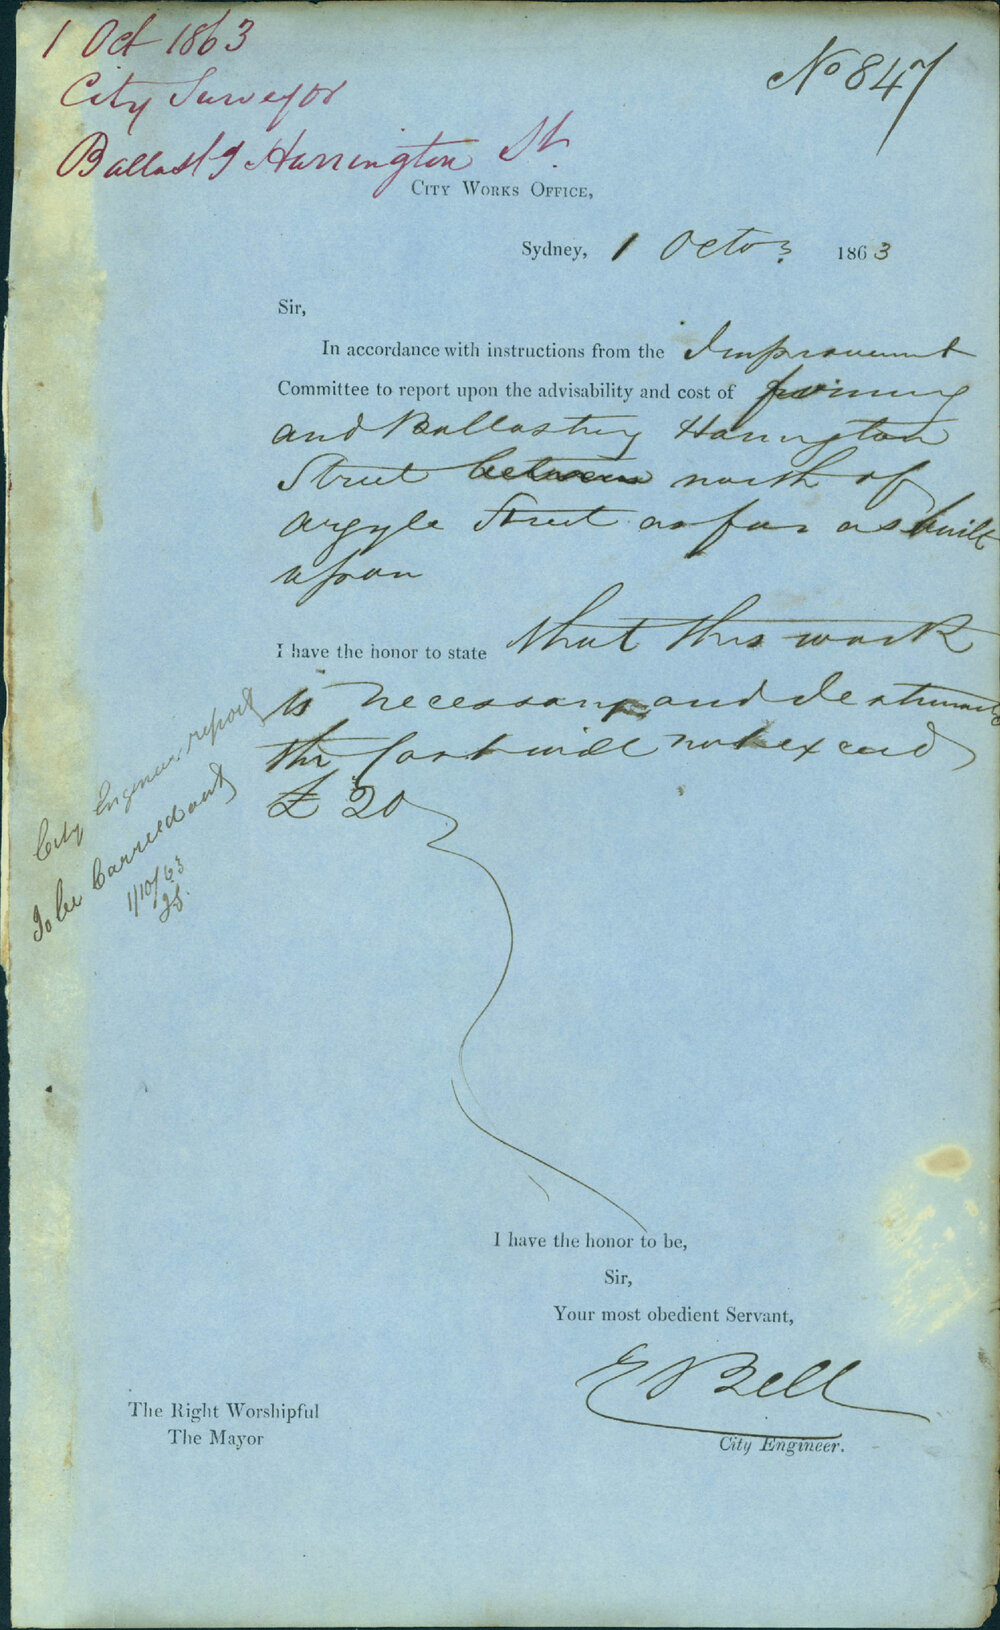 1 Oct 1863
City Surveyor
Ballast'g Harrington St.
No 847
CITY WORKS OFFICE,
Sydney, 1 Octor 1863
Sir,
In accordance with instructions from the Improvement
Committee to report upon the advisability and cost of forming
and Ballasting Harrington
Street between north of
Argyle Street as far as built
upon
I have the honor to state that this work
is necessary and I estimate
the Cost will not exceed
£20
City Engineer report
To be Carried out
1/10/63
I have the honor to be,
Sir,
Your most obedient Servant,
E Bell
City Engineer.
The Right Worshipful
The Mayor